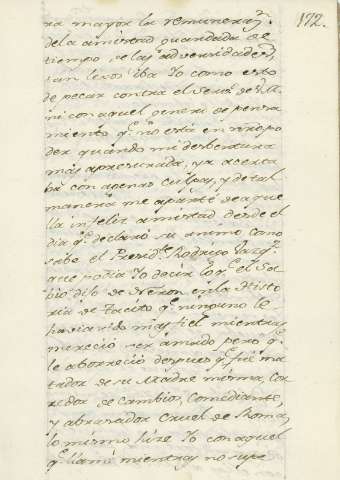 172.
ra mayor la remuneraz.n
dela amistad guardada en
tiempo de las adversidades,
tan lexos iba Yo como esto
de pecar contra el Serv.o de V.M.
ni con aquel genero de pensa
miento q.e no está en nro po
der quando mi desventura
más apresurada, ya acerca
ba con agenas culpas, y de tal
manera me aparté de aque
lla infeliz amistad desde el
dia q.e declaró su animo como
sabe el Presid.te Rodrigo Vazq.z
que podia Yo decir lo q.e el Sol
dijo de Neron en la Histo
ria de Tacito q.e ninguno le
havia sido mas fiel mientras
mereció ser amado pero q.e
le aborreció despues q.e fué ma
tador de su Madre misma, Cor
redor de cambios, Comediante,
y abrasador cruel de Roma,
lo mismo hize Yo con aquel
q.e llamé mientras no supe